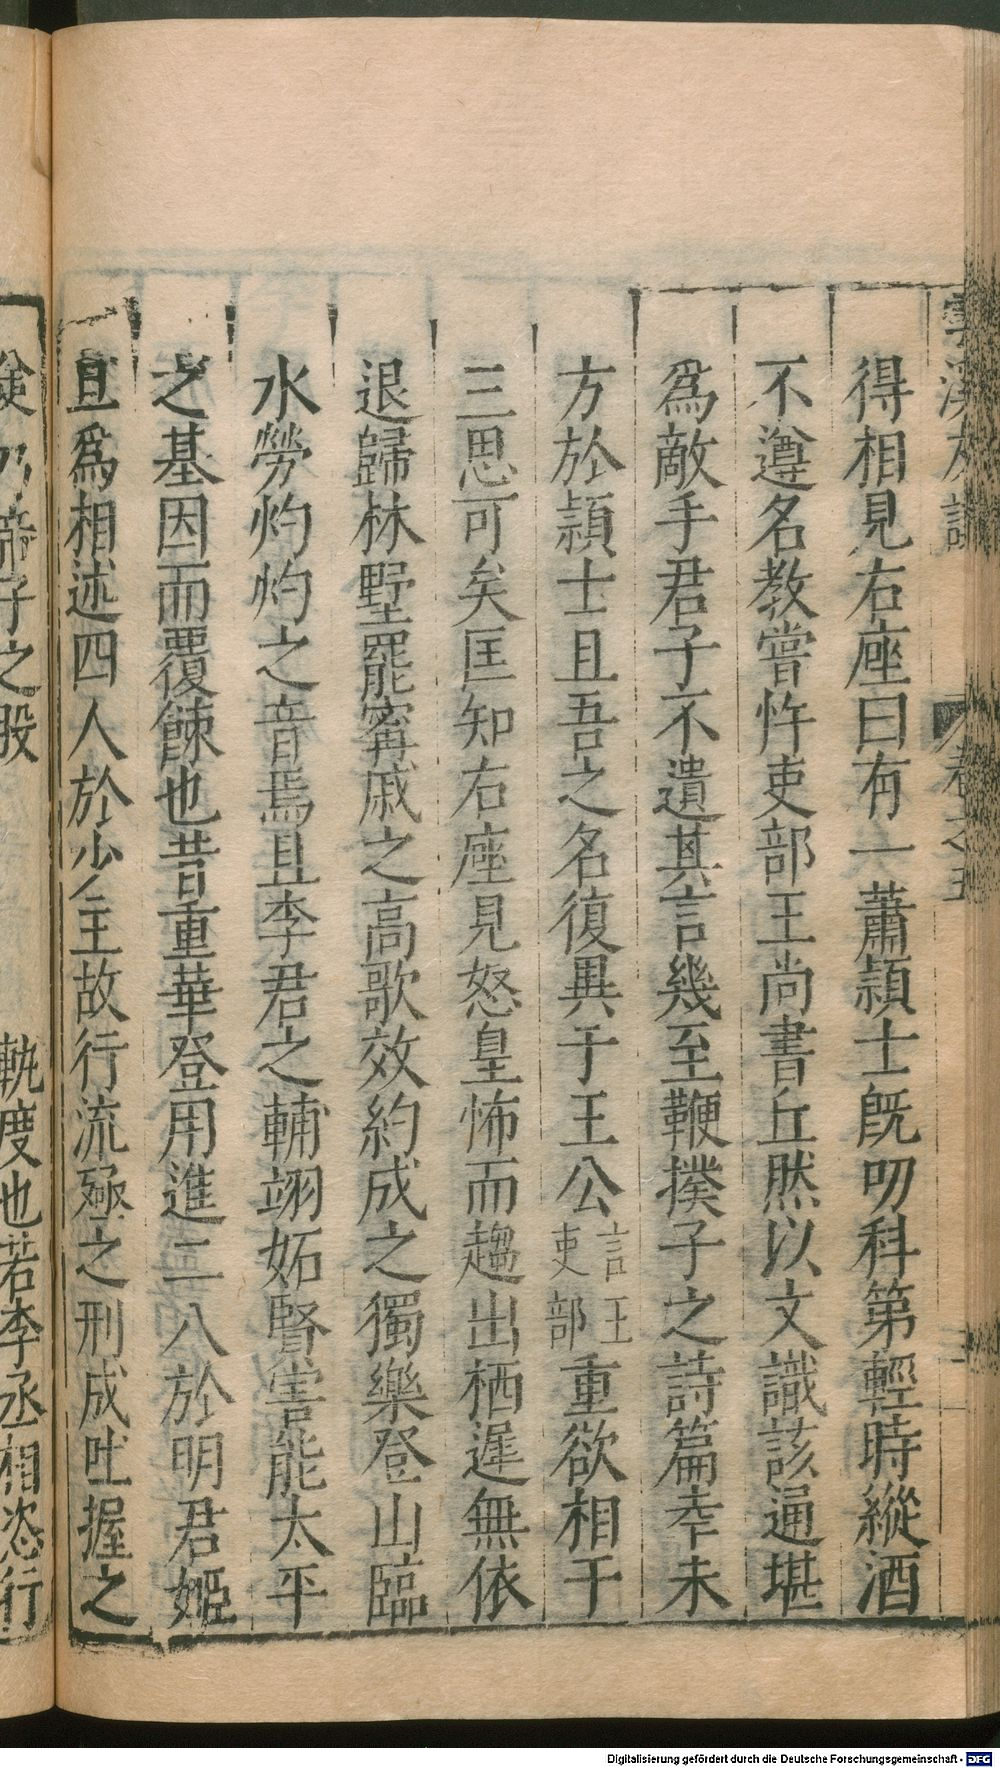 得相見右座曰有一蕭頴士旣叨科第輕時縱酒
不遵名教嘗忤吏部王尚書丘然以文識該通堪
爲敵手君子不遺其言幾至鞭撲子之詩篇幸未
方於頴士且吾之名復異于王公言王吏部重欲相于
三思可矣匡知右座見怒皇怖而趨出栖遲無依
退歸林墅罷甯戚之高歌效約成之獨樂登山臨
水勞灼灼之音焉且李君之輔翊妬賢害能太平
之基因而覆餗也昔重華登用進二八於明君姬
旦爲相述四人於少主故行流殛之刑成吐握之
之股
軌度也若李丞相恣行
Digitalisierung gefördert durch die Deutsche Forschungsgemeinschaft - DFG